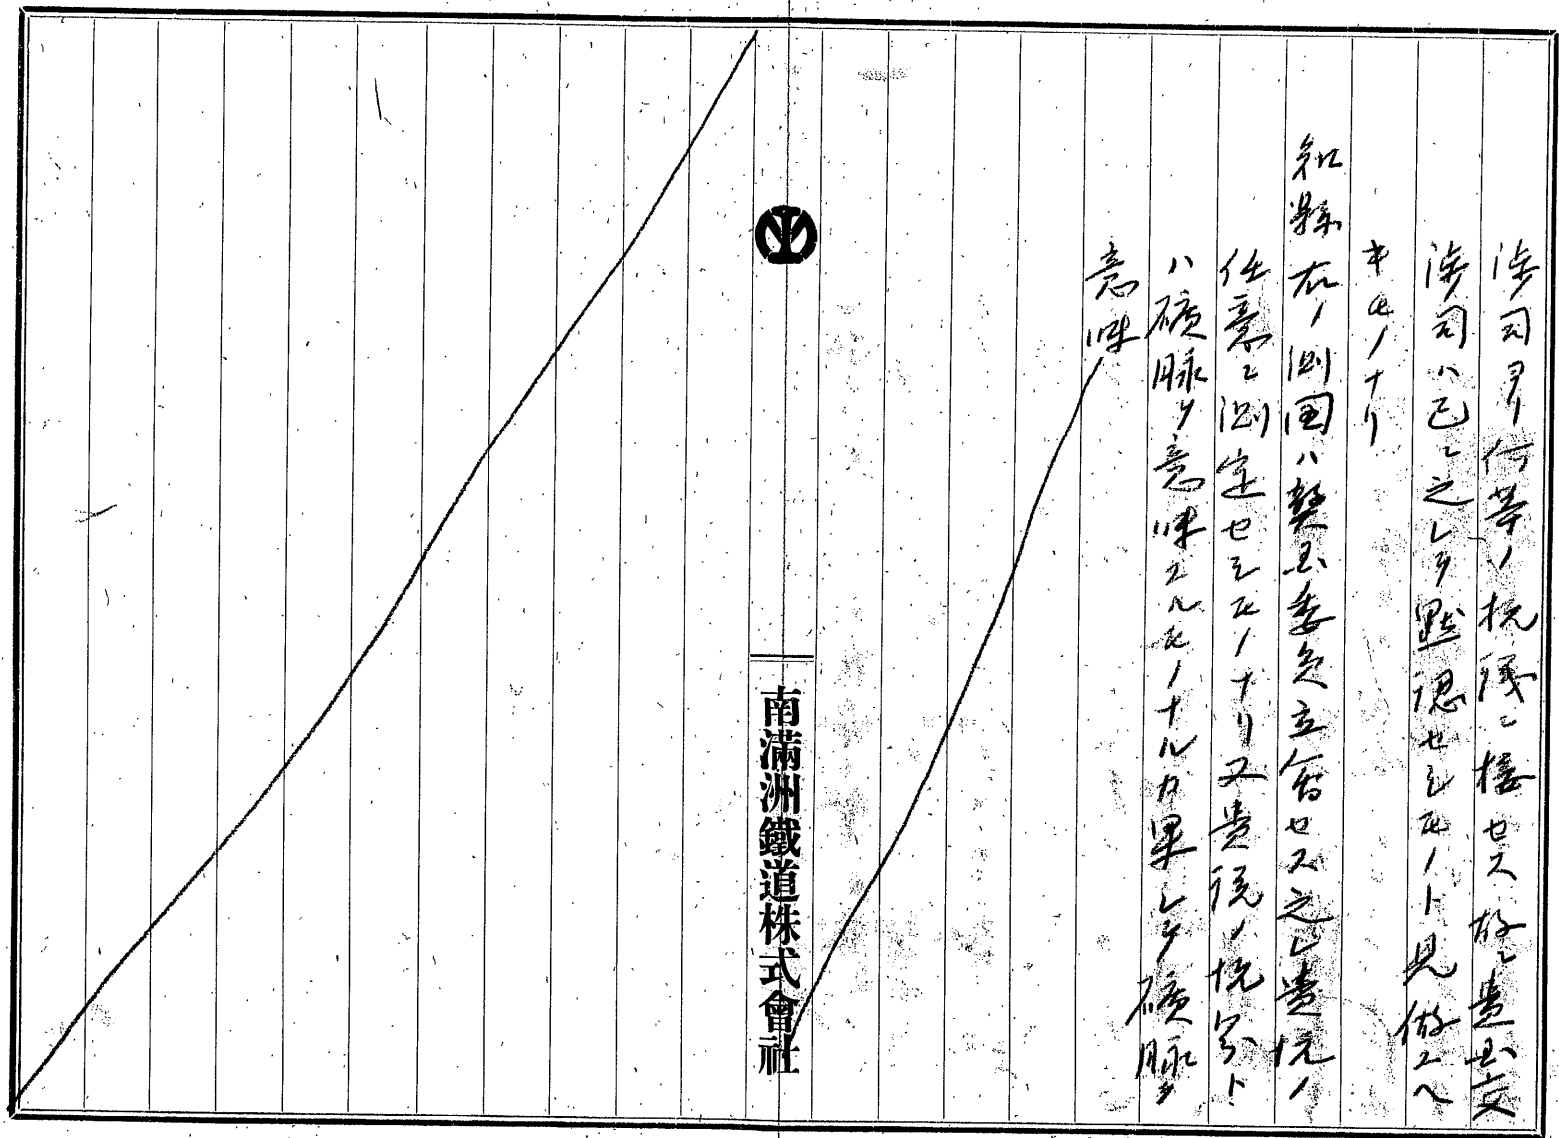 渉司ヨリ何等ノ抗議ニ接セス故ニ貴国交
渉司ハ已ニ之レヲ黙認セシモノト見做スヘ
キモノナリ
知縣 右ノ測図ハ弊国委員立会セス之レ貴坑ノ
任意ニ測定セシモノナリ又貴説ノ坑界ト
ハ礦脈ヲ意味スルモノナルカ果シテ礦脈ヲ
意味
南滿洲鐵道株式會社